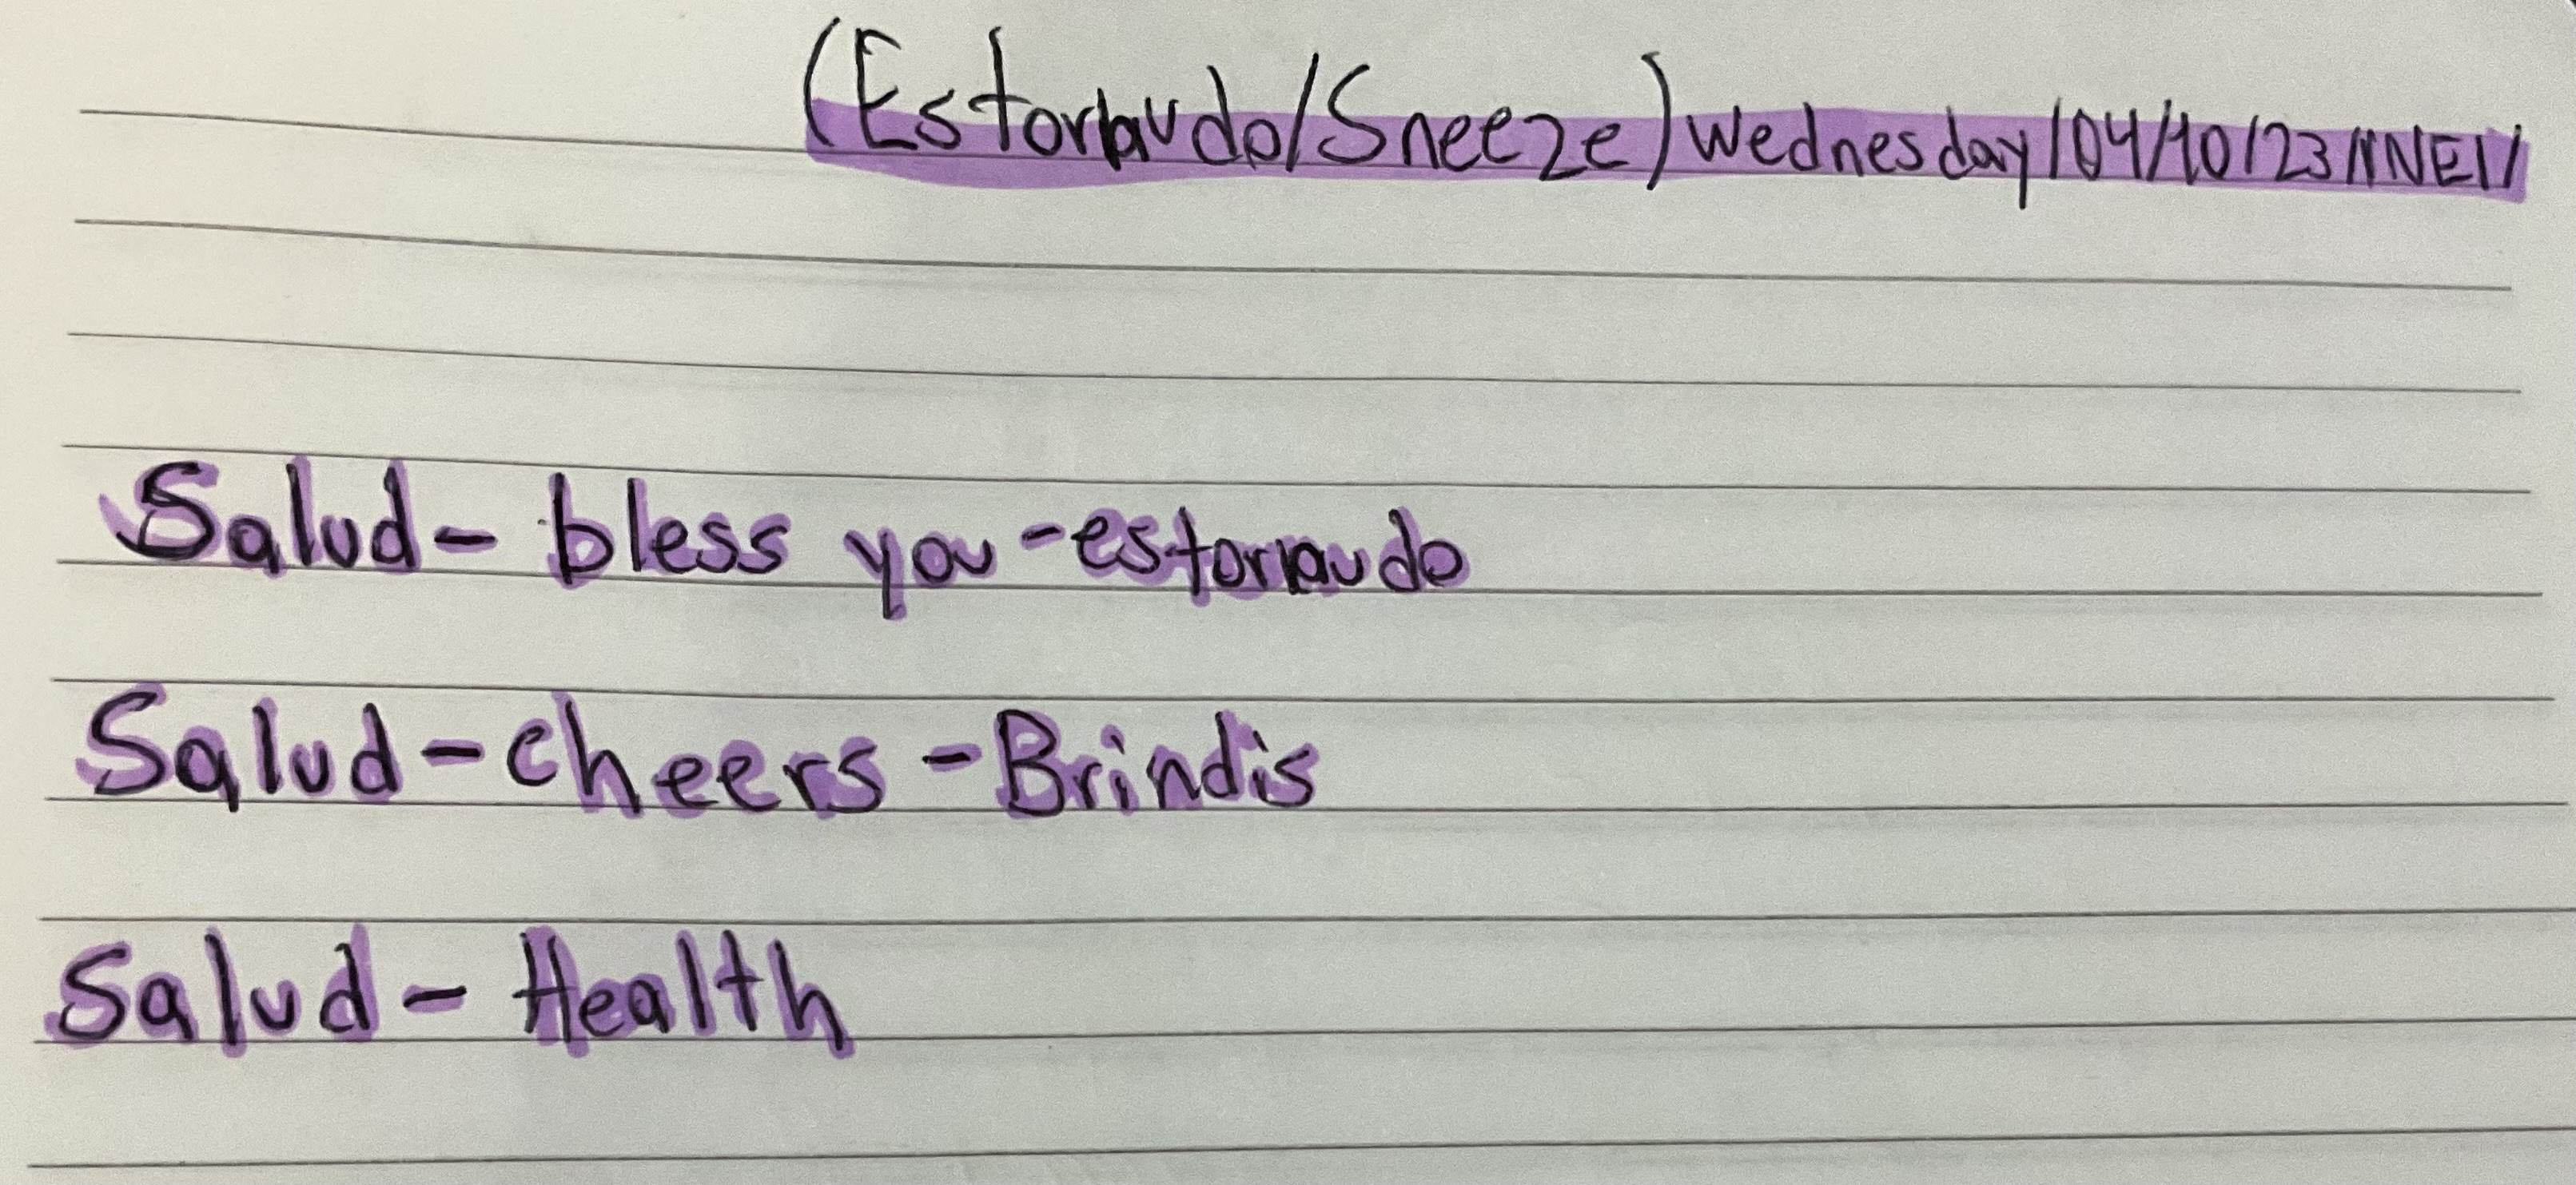 (Estornudo/Sneeze) Wednesday/04/10/23//NNE//
Salud - bless you - estornudo
Salud - cheers - Brindis
Salud - Health